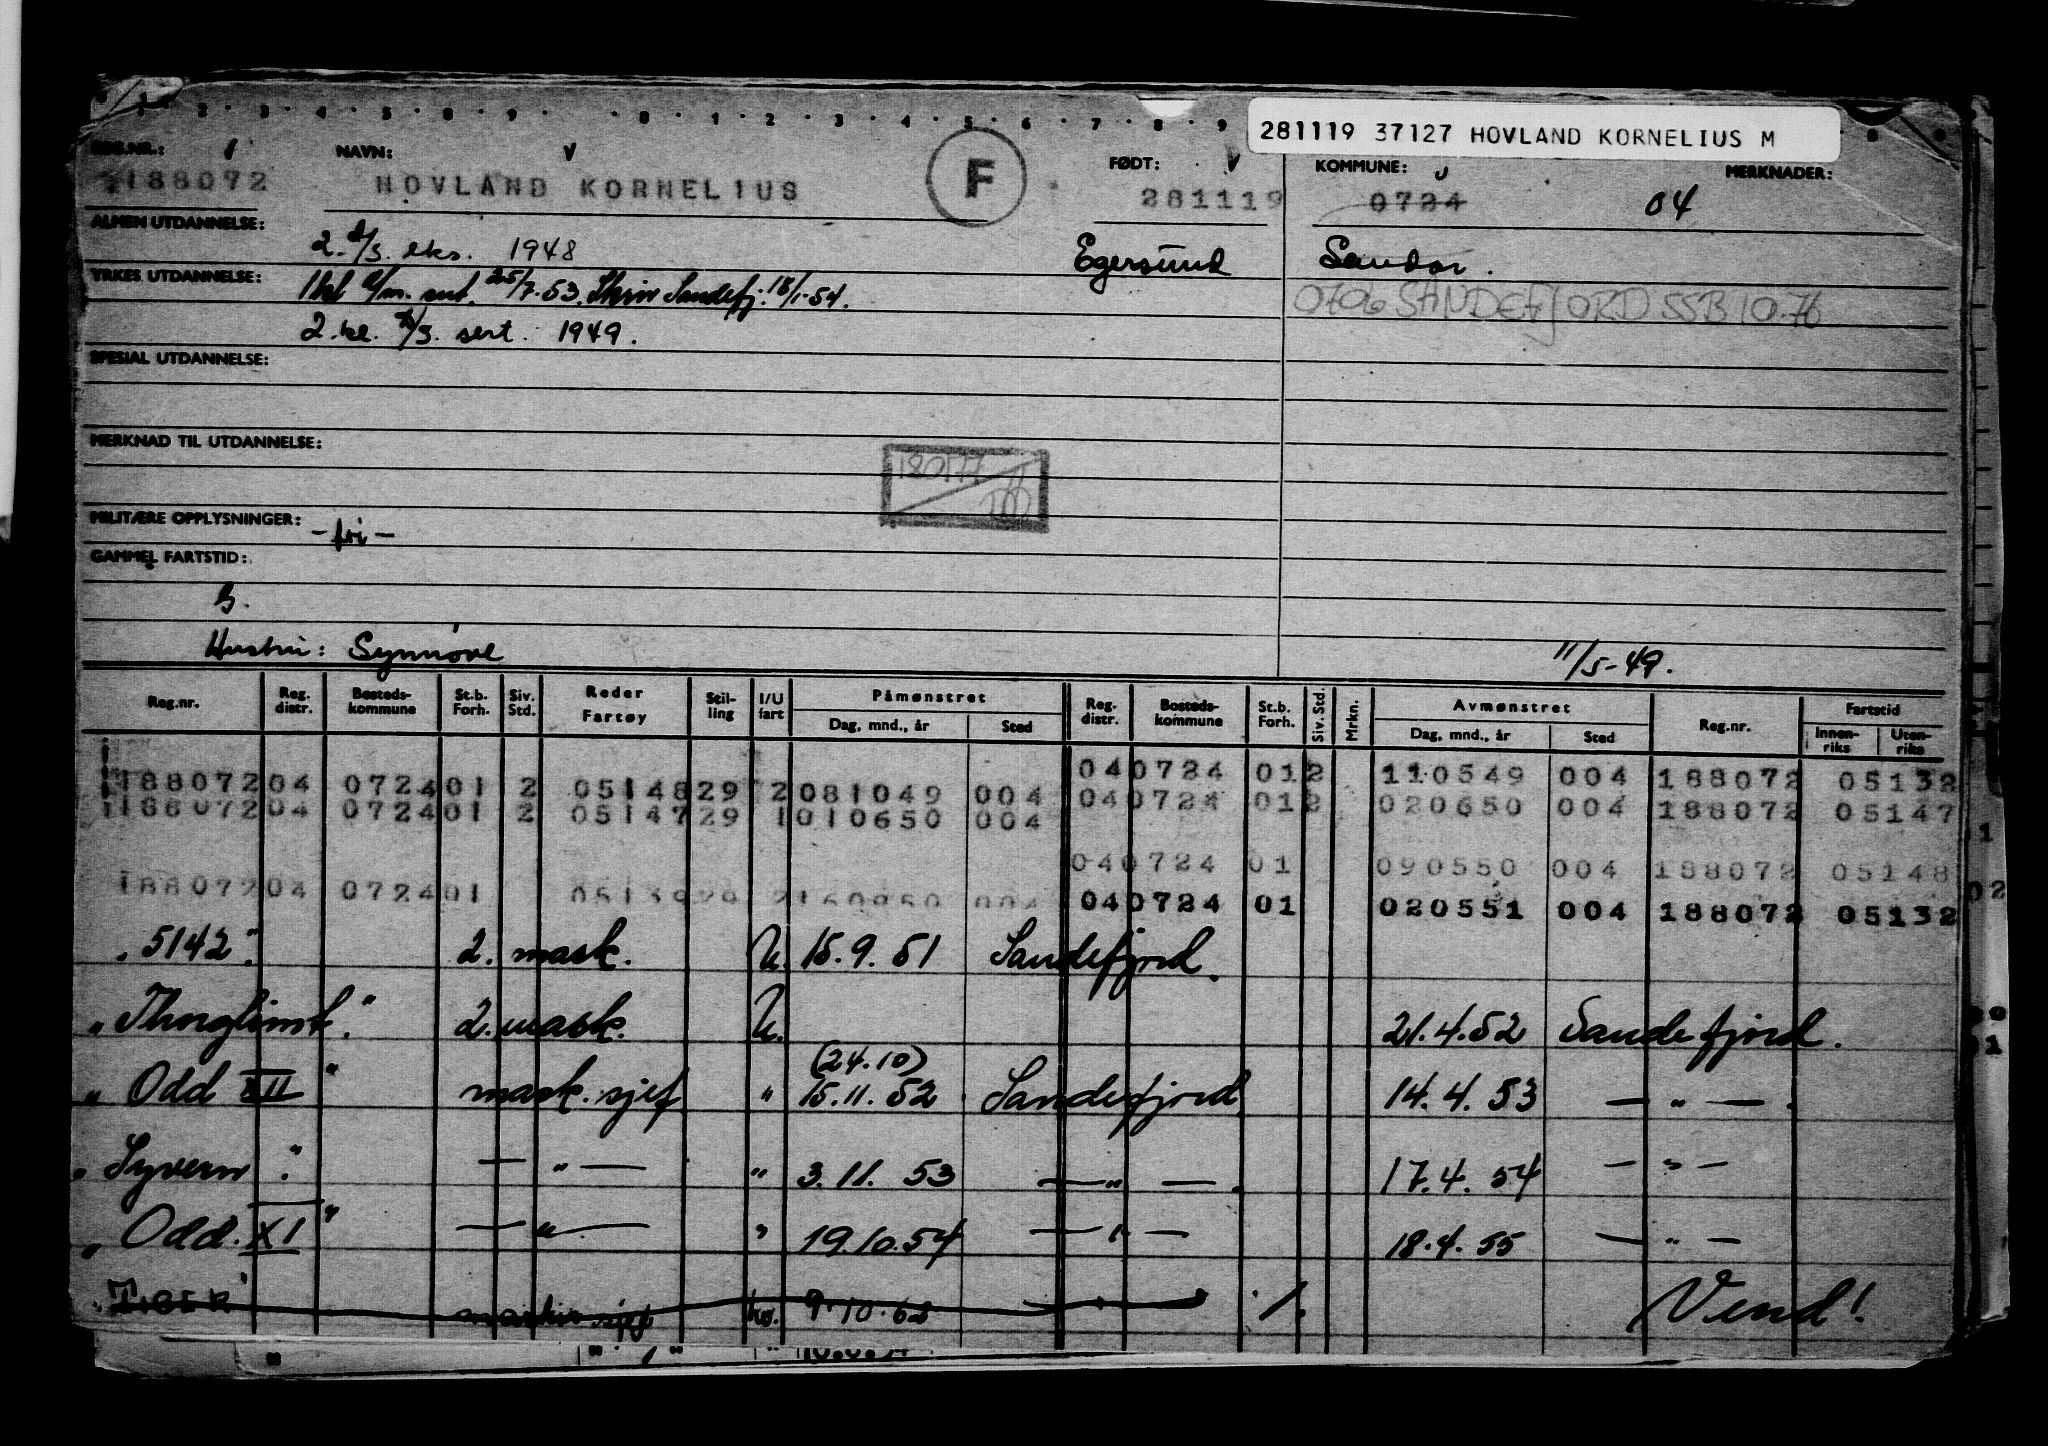 281119 37127 HOVLAND KORNELIUS M
NAVN: FØDT: KOMMUNE: MERKNADER:
188072 HOVLAND KORNELIUS F 281119 0724 04
ALMEN UTDANNELSE: 2. eks. 1948 Egersund Sandar.
YRKES UTDANNELSE: 1 kl sert. 25/7.53. Sandefj. 18/1-54.
0706 SANDEFJORD SSB 10.76
2. kl. sert. 1949.
SPESIAL UTDANNELSE:
MERKNAD TIL UTDANNELSE:
MILITÆRE OPPLYSNINGER: - fri -
GAMMEL FARTSTID:
Hustru: Synnøve 11/5-49.
Reg.nr. Reg. distr. Bosteds- kommune St.b. Forh. Siv. Std. Reder Fartøy Stil- ling I/U fart Påmønstret Reg. distr. Bosteds- kommune St.b. Forh. Siv. Std. Mrkn. Avmønstret Reg.nr. Fartstid
Dag, mnd., år Sted Dag, mnd., år Sted Innen- riks Uten- riks
040724 012 110549 004 188072 05132
188072 04 0724 01 2 05148 29 2 081049 004 040724 012 020650 004 188072 05147
188072 04 0724 01 2 05147 29 1 010650 004
040724 01 090550 004 188072 05148
188072 04 0724 01 004 040724 01 020551 004 188072 05132
"5142". 2. mask. U. 15.9.51 Sandefjord.
"Thorglimt." 2. mask. U. 21.4.52 Sandefjord.
(24.10)
"Odd XII" mask.sjef " 15.11.52 Sandefjord 14.4.53 — " — .
"Syvern". — " — " 3.11.53 — " — . 17.4.54 — " —
"Odd. XI" — " — " 19.10.54 — " — 18.4.55 — " —
"TIGER" 9.10.62 ./. Vend!